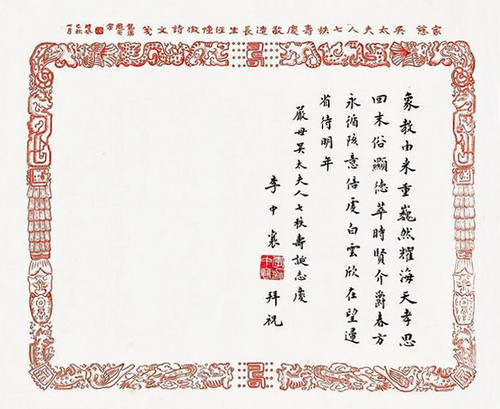 家慈 吳太夫人七秩壽慶敬造長生徵詩文箋
象教由來重巍然耀海天孝思
回末俗顯德萃時賢介爵春方
永循陔意倍虔白雲欣在望遙
省待明年
嚴母吳太夫人七秩壽誕志慶
李中襄 拜祝